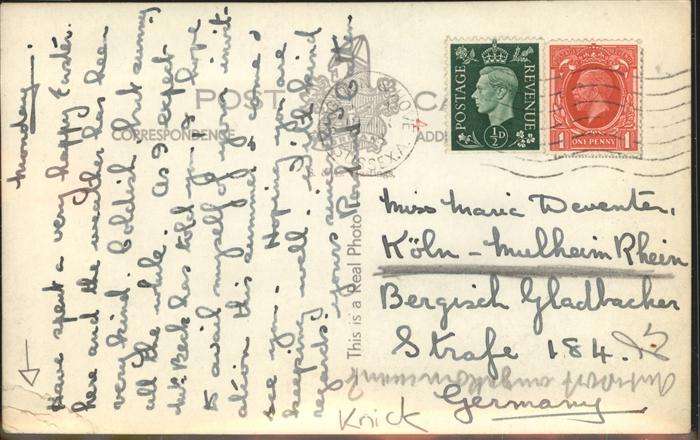 Monday.
Have spent a very happy Easter
here and the weather has been
very kind. Coldish, but sunny
all the while. As I expect
Mr. Beck has told you, I hope
to avail myself of your invit-
ation this summer & come &
see you. Hoping you are
keeping well, with kind
regards, yours sincerely
POST CARD
CORRESPONDENCE
This is a Real Photo
POSTAGE
REVENUE
½D
ONE PENNY
1 1
SUSSEX
Miss Maria Deventer,
Köln - Mulheim Rhein
Bergisch Gladbacher
Straße 184.
Germany
Antwort
Knick